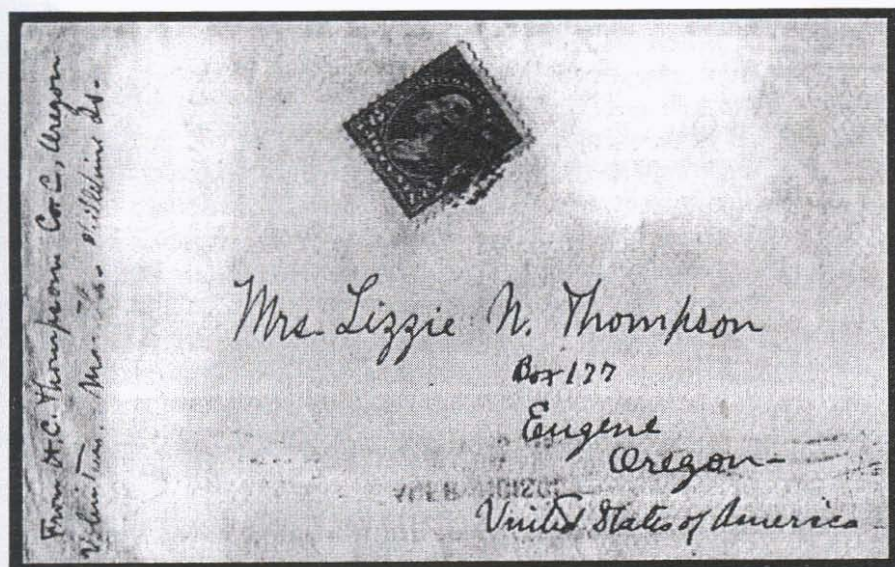 From H.C. Thompson Co. C, Oregon
Volunteers. Manila Philippine Is.
Mrs. Lizzie N. Thompson
Box 177
Eugene
Oregon-
United States of America